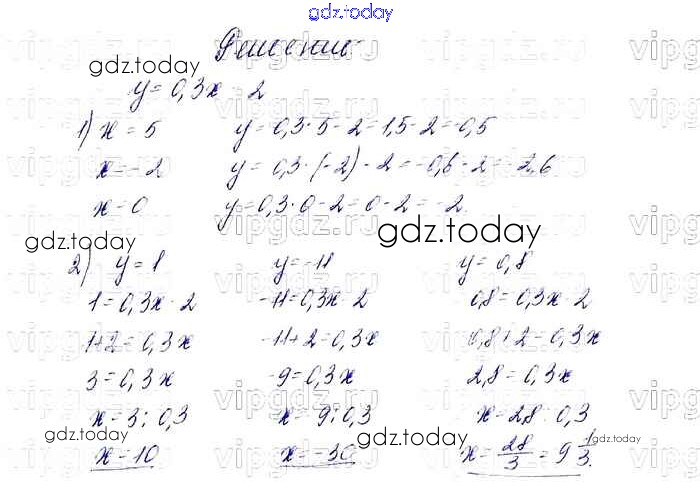 gdz.today
Решение
gdz.today
y = 0,3x - 2
1) x = 5 y = 0,3·5 - 2 = 1,5 - 2 = -0,5
x = -2 y = 0,3·(-2) - 2 = -0,6 - 2 = -2,6
x = 0 y = 0,3·0 - 2 = 0 - 2 = -2
gdz.today gdz.today
2) y = 1 y = -11 y = 0,8
1 = 0,3x - 2 -11 = 0,3x - 2 0,8 = 0,3x - 2
1+2 = 0,3x -11+2 = 0,3x 0,8+2 = 0,3x
3 = 0,3x -9 = 0,3x 2,8 = 0,3x
x = 3 : 0,3 x = -9 : 0,3 x = 2,8 : 0,3
gdz.today gdz.today gdz.today
x = 10 x = -30 x = 28/3 = 9 1/3.
vipgdz.ru